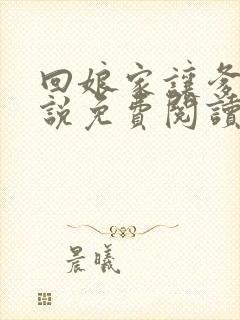 回娘家讓爹
說免費閱讀
晨曦